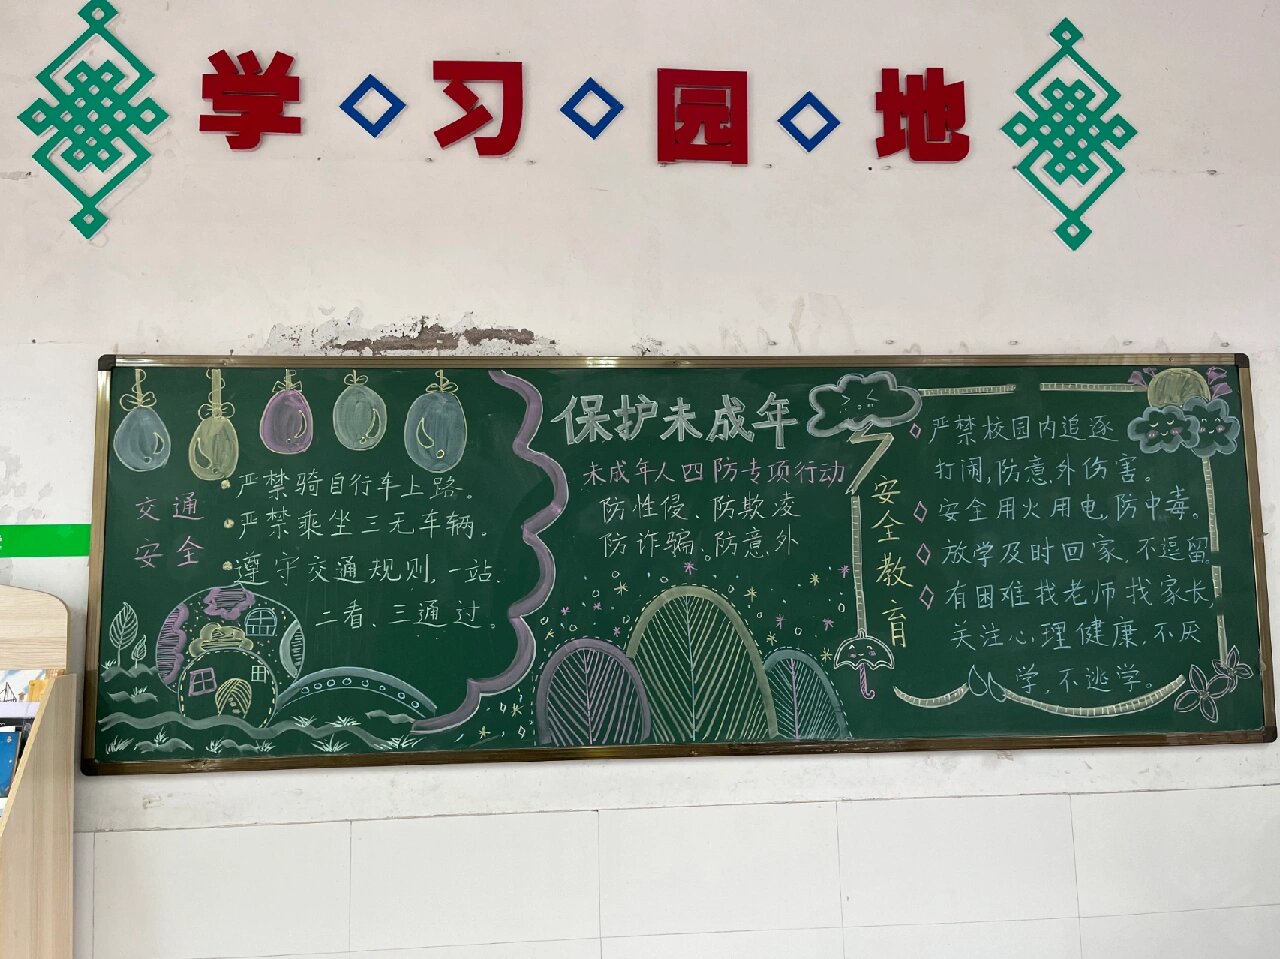 学习园地
交通
安全
严禁骑自行车上路。
严禁乘坐三无车辆。
遵守交通规则,一站、
二看、三通过。
保护未成年
未成年人四防专项行动
防性侵、防欺凌
防诈骗、防意外
安全教育
严禁校园内追逐
打闹,防意外伤害。
安全用火用电,防中毒。
放学及时回家,不逗留
有困难我老师找家长,
关注心理健康,不厌
学,不逃学。